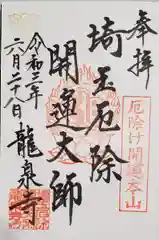 奉拝
厄除け開運本山
埼玉厄除
開運大師
令和三年
六月二十八日
龍泉寺